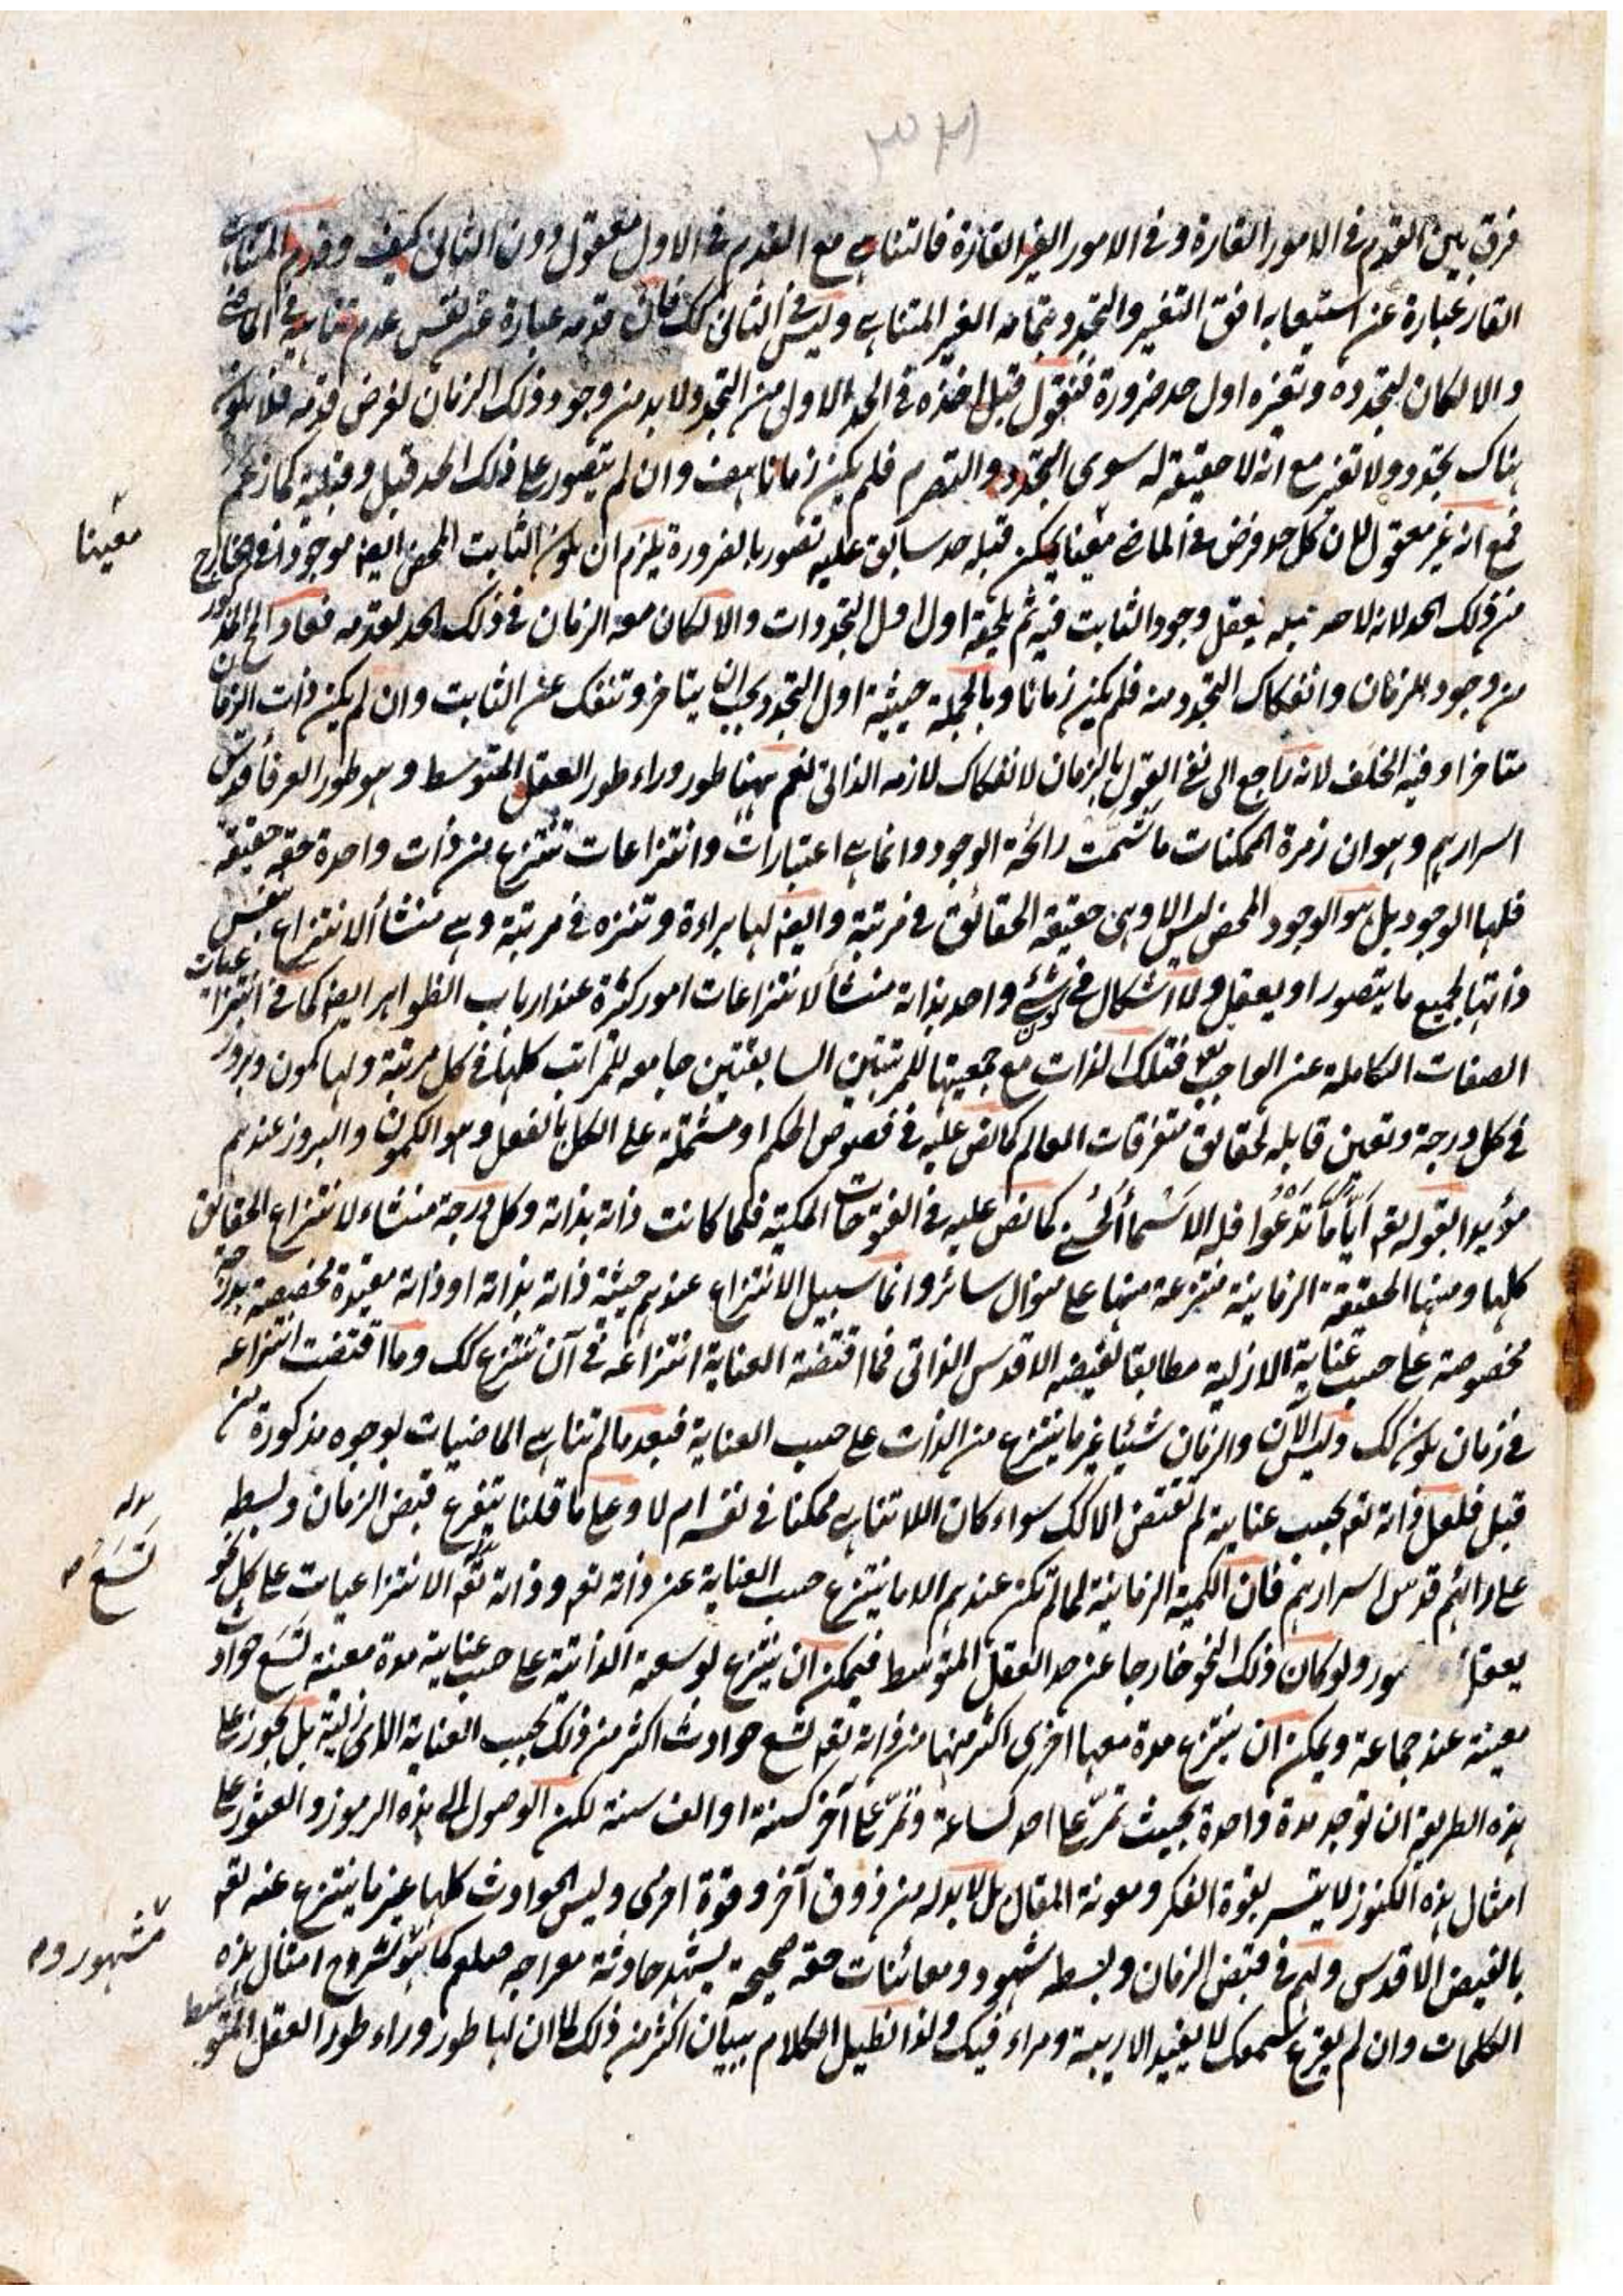 فرق بين القدم في الامور القارة وفي الامور الغير القارة فالتناهي مع القدم في الاول معقول دون الثاني كيف وقدم المتناهي
القار عبارة عن استيعابه افق التغير والتجدد بتمامه الغير المتناهي وليس في الثاني كك فان قدمه عبارة عن نفس عدم تناهيه في الماضي
والا لكان لتجدده وتغيره اول حد ضرورة فنقول قبل اخذه في الحد الاول من التجدد لا بد من وجود ذلك الزمان لفرض قدمه فلا يكون
هناك تجدد ولا تغير مع انه لا حقيقة له سوى التجدد والتصرم فلم يكن زمانا هف وان لم يتصور على ذلك الحد قبل وقبلية كما زعم
فمع انه غير معقول لان كل حد فرض في الماضي معينا يمكن قبله حد سابق عليه تصور بالضرورة يلزم ان يكون الثابت المحض ايضا موجودا في الخارج
من ذلك الحد لانه لا حد قبله يعقل وجود الثابت فيه ثم يلحقه اول اول التجددات والا لكان معه الزمان في ذلك الحد لقدمه فعاد الى المذكور
من وجود الزمان وانفكاك التجدد منه فلم يكن زمانا وبالجملة حيثية اول التجدد يجب ان يتاخر وتنفك عن الثابت وان لم يكن ذات الزمان
متاخرا وفيه الخلف لانه راجع الى نفي القول بالزمان لانفكاك لازمه الذاتي نعم ههنا طور وراء طور العقل المتوسط وهو طور العرفا قدس
اسرارهم وهو ان زمرة الممكنات ما شمت رائحة الوجود وانما هي اعتبارات وانتزاعات تنتزع من ذات واحدة حقة حقيقة
فلها الوجود بل هو الوجود المحض ليس الا وهي حقيقة الحقائق في مرتبة وايضا لها براءة وتنزه في مرتبة وهي منشأ الانتزاع بنفس
ذاتها لجميع ما يتصور او يعقل ولا اشكال في كون شيء واحد بذاته منشأ لانتزاعات امور كثرة عند ارباب الظواهر ايضا كما في انتزاعيات
الصفات الكاملة عن الواجب تع فتلك الذات مع جمعيتها للمرتبتين السابقتين جامعه للمراتب كلها في كل مرتبة ولها كمون وبروز
في كل درجة وتعين قابله لحقايق متفرقات العالم كما نص عليه في فصوص الحكم او مشتملة على الكل بالفعل وهو الكمون والبروز عندهم
مؤيدا بقوله تع اَيّاً مَّا تَدْعُوا فله الاسماء الحسنى كما نص عليه في الفتوحات المكية فلما كانت ذاته بذاته وكل درجة منشاء لانتزاع الحقايق
كلها ومنها الحقيقة الزمانية منتزعة منها على منوال سائر وانما سبيل الانتزاع عندهم حيثية ذاته بذاته او ذاته مقيدة مخصصة بدرجة
مخصوصة على حسب عناية الازلية مطابقا لفيضه الاقدس الذاتي فما اقتضته العناية انتزاعه في آن تنتزع كك وما اقتضت انتزاعه
في زمان يكون كك وليس الآن والزمان شيئا غير ما ينتزع من الذات على حسب العناية فبعد ما لم تتناهى الماضيات بوجوه مذكورة من
قبل فلعل ذاته تع بحسب عنايته لم تقتض الا كك سواء كان اللاتناهي ممكنا في نفسه ام لا وعلى ما قلنا يتفرع قبض الزمان وبسطه
على رائهم قدس اسرارهم فان الكمية الزمانية لما لم تكن عندهم الا ما ينتزع حسب العناية عن ذاته تع وذاته تع الانتزاعيات على كل نحو
يعقل مور ولو كان ذلك النحو خارجا عن حد العقل المتوسط فيمكن ان ينتزع لوسعه الذاتية على حسب عنايته مدة معينة تسع حوادث
معينة عند جماعة ويمكن ان ينتزع مدة معها اخرى اكثر منها من ذاته تع تسع حوادث اكثر من ذلك بحسب العناية الازلية بل يجوز على
هذه الطريقه ان توجد مدة واحدة بحيث تمرّ على احد كساعة وتمرّ على آخر كسنة او الف سنة لكن الوصول الى هذه الرموز والعثور على
امثال هذه الكنوز لا يتيسر بقوة الفكر ومعونة المقال بل لا بد له من ذوق آخر وقوة اخرى وليس الحوادث كلها غير ما ينتزع عنه تع
بالفيض الاقدس ولهم في قبض الزمان وبسطه شهود ومعائنات حقه صحيحة يشهد حادثة معراجه صلعم كما هو مشروح امثال هذه
الكلمات وان لم يقرع سمعك لا يفيد الا ريبة ومراء فيك ولذا نطيل الكلام ببيان اكثر من ذلك لما ان لها طور وراء طور العقل المتوسط
معينا
تسَعَ ص
مشهوروه